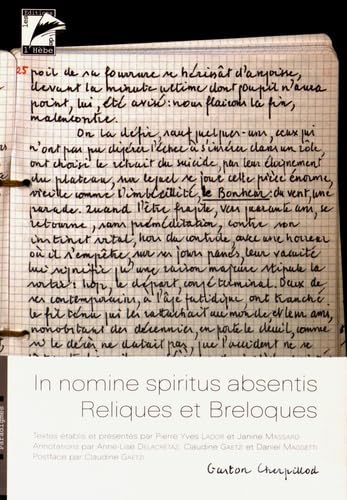 les Editions
de
l'Hèbe
25 poil de sa fourrure se hérisât d'angoisse,
devant la minute ultime dont pourpil n'aura
point, lui, été avisé : nous flairons la fin,
malencontre.
On la défie, sauf quelques-uns, ceux qui
n'ont pas pu digérer l'échec à s'insérer dans un rôle,
ont choisi le retrait du suicide, par leur éloignement
du plateau, sur lequel se joue cette pièce énorme,
vieille comme l'imbécillité, le Bonheur du vent, une
parade. Quand l'être fragile, vers quarante ans, se
retourne, sans préméditation, contre son
instinct vital, hors du contrôle, avec une horreur
où il s'empêtre, sur ses jours passés, leur vacuité
lui signifie qu'une raison majeure stipule la
sortie : hop, le départ, congé terminal. Deux de
ses contemporains, à l'âge fatidique ont tranché
le fil ténu qui les rattachait au monde et leur ami,
nonobstant des décennies, en porte le deuil, comme
si le décès ne datait pas, que l'accident ne se
In nomine spiritus absentis
Reliques et Breloques
Textes établis et présentés par Pierre Yves Lador et Janine Massard
Annotations par Anne-Lise Delacrétaz, Claudine Gaetzi et Daniel Maggetti
Postface par Claudine Gaetzi
Gaston Cherpillod
Paradigmes